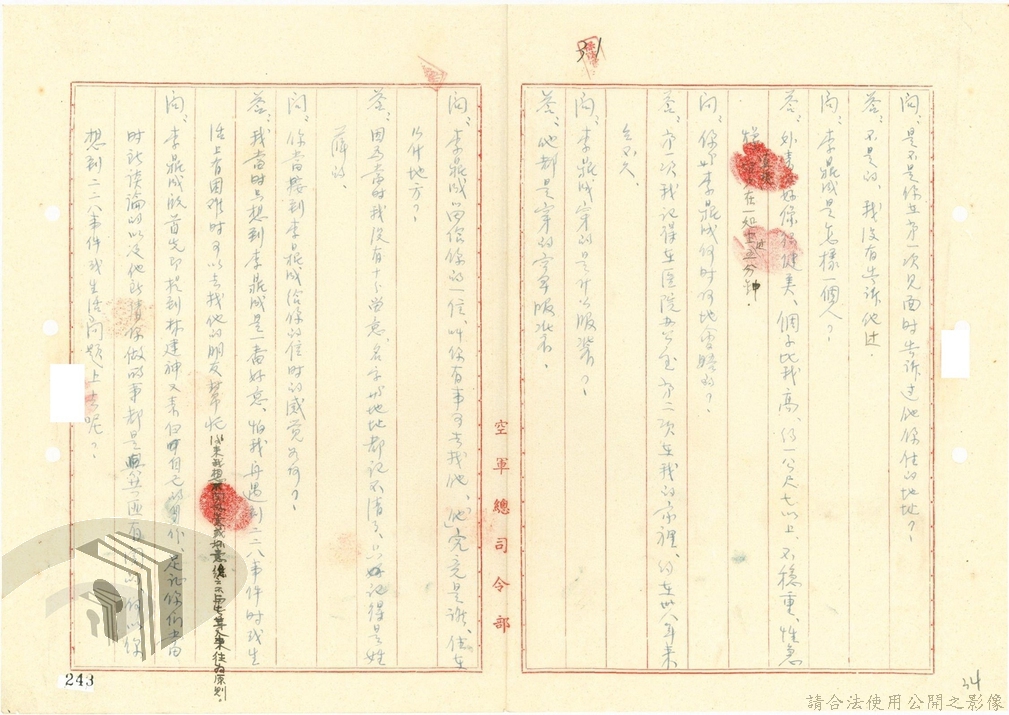 問：是不是你在第一次見面時告訴过他你住的地址？
答：不是的，我沒有告訴他过．
問：李鼎成是怎樣一個人？
答：外表 好像很健美、個子比我高、約一公尺七以上、不穩重、性急
在一起 过 分钟．
問：你與李鼎成何時何地會晤的？
答：第一次我記得在医院办公室第二次在我的家裡、約在卅八年末
會不久
問：李鼎成穿的是什么服裝？
答：他都是穿的空軍服裝者．
問：李鼎成留給你的一信，叫你有事可去找他，「他」究竟是誰，住在
什么地方？
答：因為當時我沒有十分留意、名字與地址都記不清了、只好記得是姓
薛的．
問：你當接到李鼎成給你的信時的感覚如何？
答：我當時只想到李鼎成是一番好意、怕我再遇到二二八事件时或生
活上有困难时可以去找他的朋友帮忙
来往為原則．
問：李鼎成既首先即提到林建神又素 自己的 作，足証你们當
时就談論的以及他所 你做的事都是與共匪有関的 何以你
想到二二八事件或生活问题上去呢？
空軍總司令部
31
34
243
請合法使用公開之影像